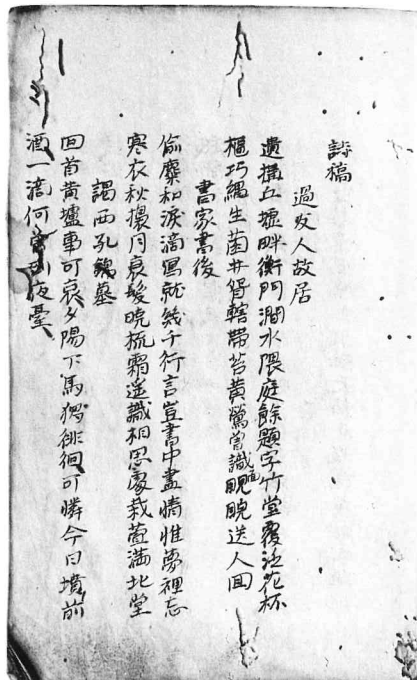 詩稿
過友人故居
遺搆丘墟畔衡門澗水隈庭餘題字竹堂覆泛花杯
樞巧繩生菌井眢轄帶苔黄鶯曾識面睍睆送人回
書家書後
偷麋和淚滴寫就幾千行言豈書中盡情惟夢裡忘
寒衣秋擣月衰髮曉梳霜遥識相思處栽萱滿北堂
謁西孔墓
回首黄壚事可哀夕陽下馬獨徘徊可憐今日墳前
酒一滴何曾到夜臺